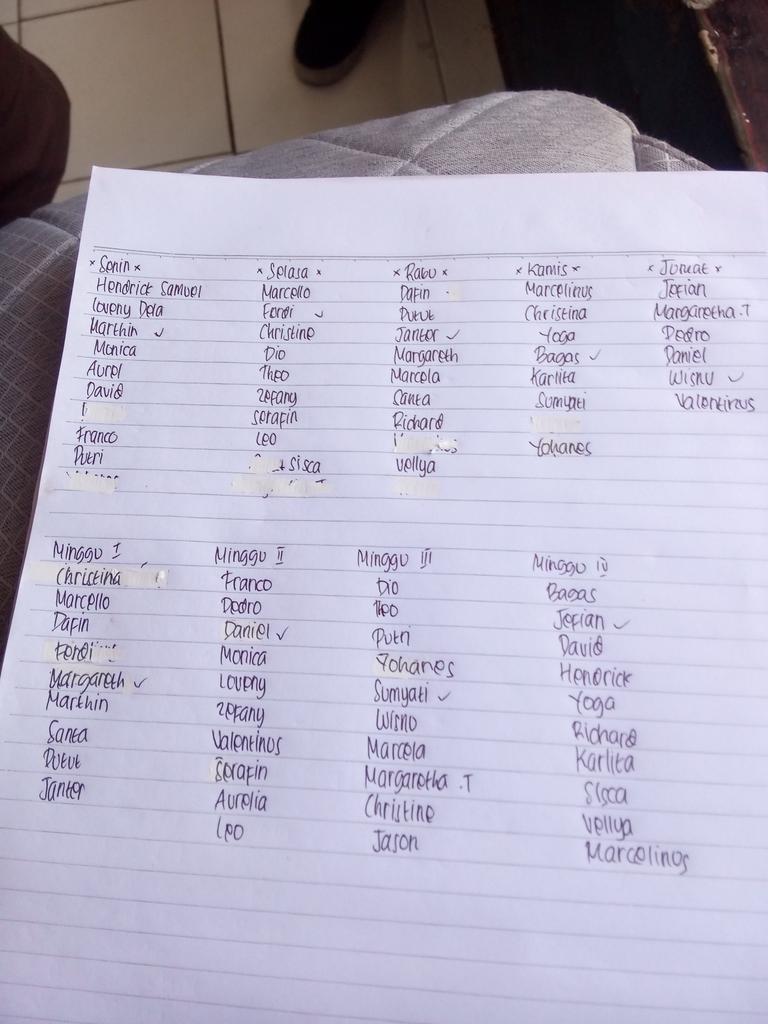 × Senin × × Selasa × × Rabu × × Kamis × × Jumat ×
Hendrick Samuel Marcello Dafin Marcelinus Jefian
Loveny Dera Ferdi ✓ Putut Christina Margaretha.T
Marthin ✓ Christine Janter ✓ Yoga Pedro
Monica Dio Margareth Bagas ✓ Daniel
Aurel Theo Marcela Karlita Wisnu ✓
David Zefany Santa Sumyati Valentinus
Serafin Richard
Franco Leo Yohanes
Putri Sisca Vellya
Minggu I Minggu II Minggu III Minggu IV
Christina Franco Dio Bagas
Marcello Pedro Theo Jefian ✓
Dafin Daniel ✓ Putri David
Ferdi Monica Yohanes Hendrick
Margareth ✓ Loveny Sumyati ✓ Yoga
Marthin Zefany Wisnu Richard
Santa Valentinus Marcela Karlita
Putut Serafin Margaretha.T Sisca
Janter Aurelia Christine Vellya
Leo Jason Marcelinus